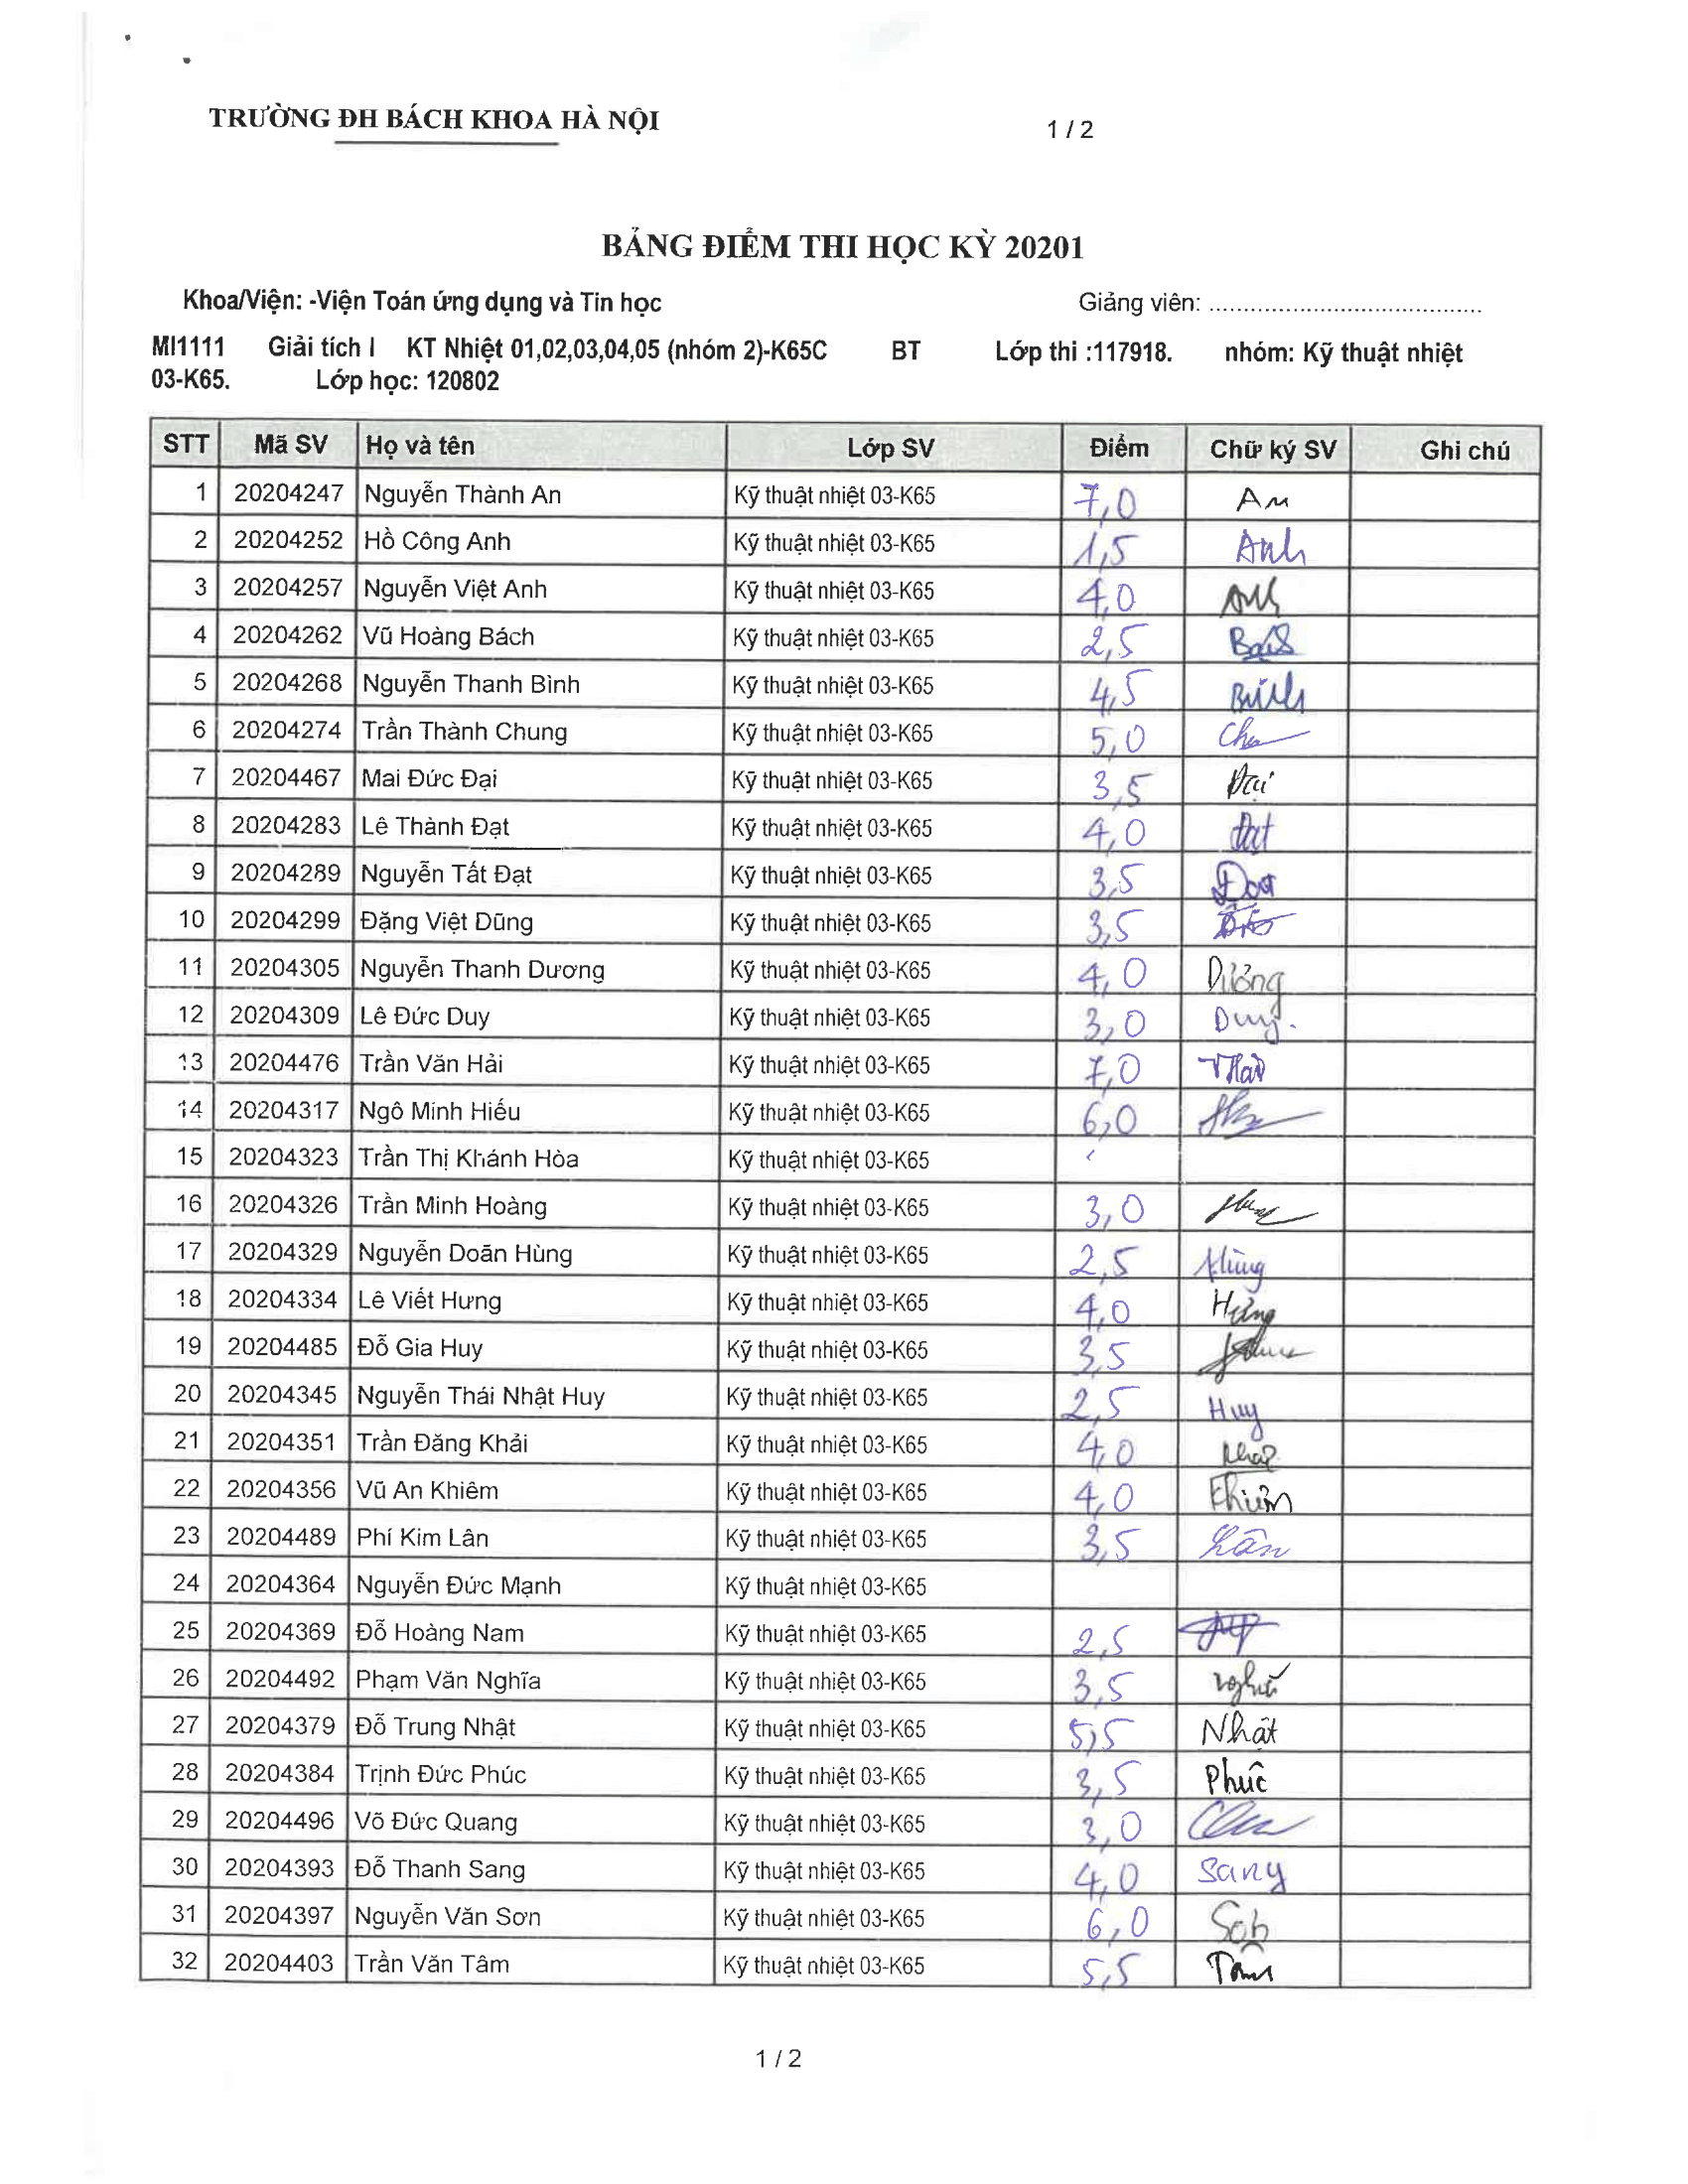 TRƯỜNG ĐH BÁCH KHOA HÀ NỘI
1 / 2
BẢNG ĐIỂM THI HỌC KỲ 20201
Khoa/Viện: -Viện Toán ứng dụng và Tin học Giảng viên: ........................................
MI1111 Giải tích I KT Nhiệt 01,02,03,04,05 (nhóm 2)-K65C BT Lớp thi :117918. nhóm: Kỹ thuật nhiệt
03-K65. Lớp học: 120802
STT Mã SV Họ và tên Lớp SV Điểm Chữ ký SV Ghi chú
1 20204247 Nguyễn Thành An Kỹ thuật nhiệt 03-K65 7,0 An
2 20204252 Hồ Công Anh Kỹ thuật nhiệt 03-K65 1,5 Anh
3 20204257 Nguyễn Việt Anh Kỹ thuật nhiệt 03-K65 4,0 Anh
4 20204262 Vũ Hoàng Bách Kỹ thuật nhiệt 03-K65 2,5
5 20204268 Nguyễn Thanh Bình Kỹ thuật nhiệt 03-K65 4,5 Bình
6 20204274 Trần Thành Chung Kỹ thuật nhiệt 03-K65 5,0
7 20204467 Mai Đức Đại Kỹ thuật nhiệt 03-K65 3,5 Đại
8 20204283 Lê Thành Đạt Kỹ thuật nhiệt 03-K65 4,0 Đạt
9 20204289 Nguyễn Tất Đạt Kỹ thuật nhiệt 03-K65 3,5 Đạt
10 20204299 Đặng Việt Dũng Kỹ thuật nhiệt 03-K65 3,5
11 20204305 Nguyễn Thanh Dương Kỹ thuật nhiệt 03-K65 4,0 Dương
12 20204309 Lê Đức Duy Kỹ thuật nhiệt 03-K65 3,0 Duy.
13 20204476 Trần Văn Hải Kỹ thuật nhiệt 03-K65 7,0
14 20204317 Ngô Minh Hiếu Kỹ thuật nhiệt 03-K65 6,0
15 20204323 Trần Thị Khánh Hòa Kỹ thuật nhiệt 03-K65
16 20204326 Trần Minh Hoàng Kỹ thuật nhiệt 03-K65 3,0
17 20204329 Nguyễn Doãn Hùng Kỹ thuật nhiệt 03-K65 2,5 Hùng
18 20204334 Lê Viết Hưng Kỹ thuật nhiệt 03-K65 4,0 Hưng
19 20204485 Đỗ Gia Huy Kỹ thuật nhiệt 03-K65 3,5
20 20204345 Nguyễn Thái Nhật Huy Kỹ thuật nhiệt 03-K65 2,5 Huy
21 20204351 Trần Đăng Khải Kỹ thuật nhiệt 03-K65 4,0 Khải
22 20204356 Vũ An Khiêm Kỹ thuật nhiệt 03-K65 4,0 Khiêm
23 20204489 Phí Kim Lân Kỹ thuật nhiệt 03-K65 3,5 Lân
24 20204364 Nguyễn Đức Mạnh Kỹ thuật nhiệt 03-K65
25 20204369 Đỗ Hoàng Nam Kỹ thuật nhiệt 03-K65 2,5
26 20204492 Phạm Văn Nghĩa Kỹ thuật nhiệt 03-K65 3,5 nghĩa
27 20204379 Đỗ Trung Nhật Kỹ thuật nhiệt 03-K65 5,5 Nhật
28 20204384 Trịnh Đức Phúc Kỹ thuật nhiệt 03-K65 3,5 Phúc
29 20204496 Võ Đức Quang Kỹ thuật nhiệt 03-K65 3,0
30 20204393 Đỗ Thanh Sang Kỹ thuật nhiệt 03-K65 4,0 Sang
31 20204397 Nguyễn Văn Sơn Kỹ thuật nhiệt 03-K65 6,0 Sơn
32 20204403 Trần Văn Tâm Kỹ thuật nhiệt 03-K65 5,5 Tâm
1 / 2